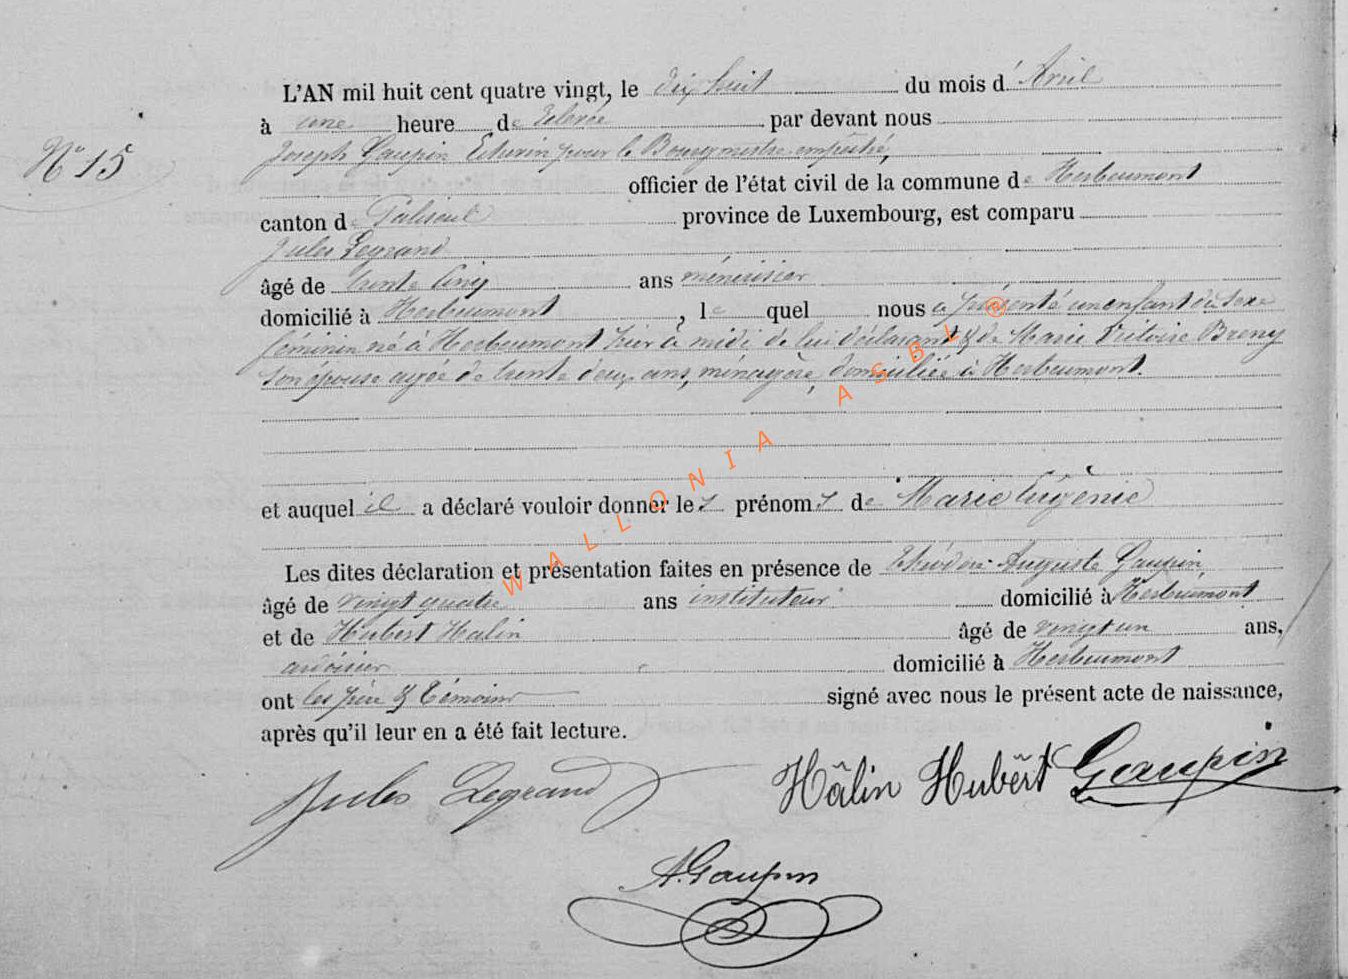 L'AN mil huit cent quatre vingt, le dix huit du mois d'Avril
N° 15
à une heure de relevée par devant nous
Joseph Gaupin Echevin pour le Bourgmestre empêché,
officier de l'état civil de la commune de Herbeumont
canton de Paliseul province de Luxembourg, est comparu
Jules Legrand
âgé de trente cinq ans ménuisier
domicilié à Herbeumont, le quel nous a présenté un enfant du sexe
féminin né à Herbeumont hier à midi de lui déclarant & de Marie Victoire Breny
son épouse agée de trente deux ans, ménagère, domiciliée à Herbeumont.
et auquel il a déclaré vouloir donner les prénoms de Marie Eugènie
Les dites déclaration et présentation faites en présence de Théodore Auguste Gaupin
âgé de vingt quatre ans instituteur domicilié à Herbeumont
et de Hubert Halin âgé de vingt un ans,
ardoisier domicilié à Herbeumont
ont les père & témoins signé avec nous le présent acte de naissance,
après qu'il leur en a été fait lecture.
Jules Legrand Hâlin Hubert Gaupin
A. Gaupin
WALLONIA ASBL ®